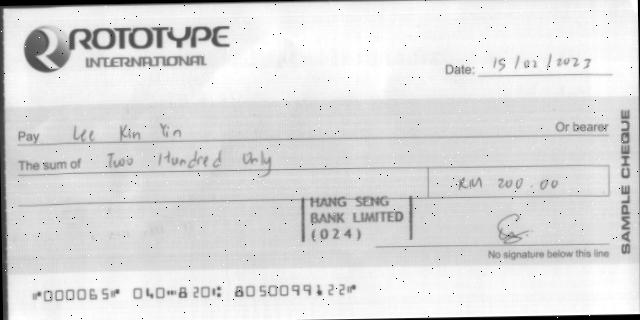 ROTOTYPE
INTERNATIONAL
Date: 15/02/2023
Pay Lee Kin Yin Or bearer
The sum of Two Hundred Only
RM 200.00
HANG SENG
BANK LIMITED
(024)
No signature below this line
SAMPLE CHEQUE
⑈000065⑈ 040⑉820⑆ 8050099122⑈